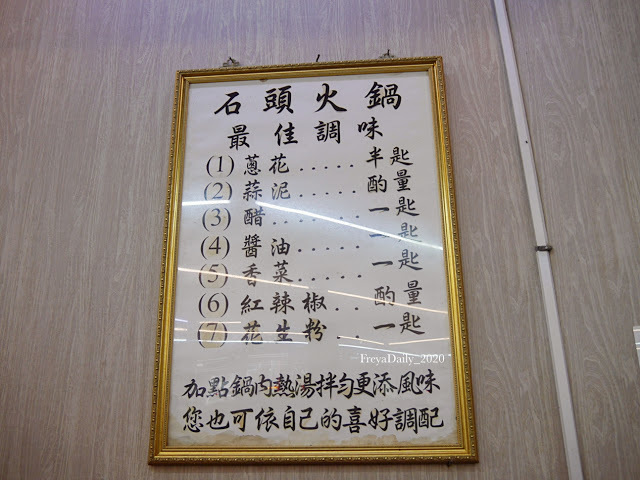 石頭火鍋
最佳調味
(1) 蔥花..... 半匙
(2) 蒜泥...... 酌量
(3) 醋........ 一匙
(4) 醬油...... 一匙
(5) 香菜...... 一匙
(6) 紅辣椒... 酌量
(7) 花生粉... 一匙
FreyaDaily_2020
加點鍋內熱湯拌勻更添風味
您也可依自己的喜好調配